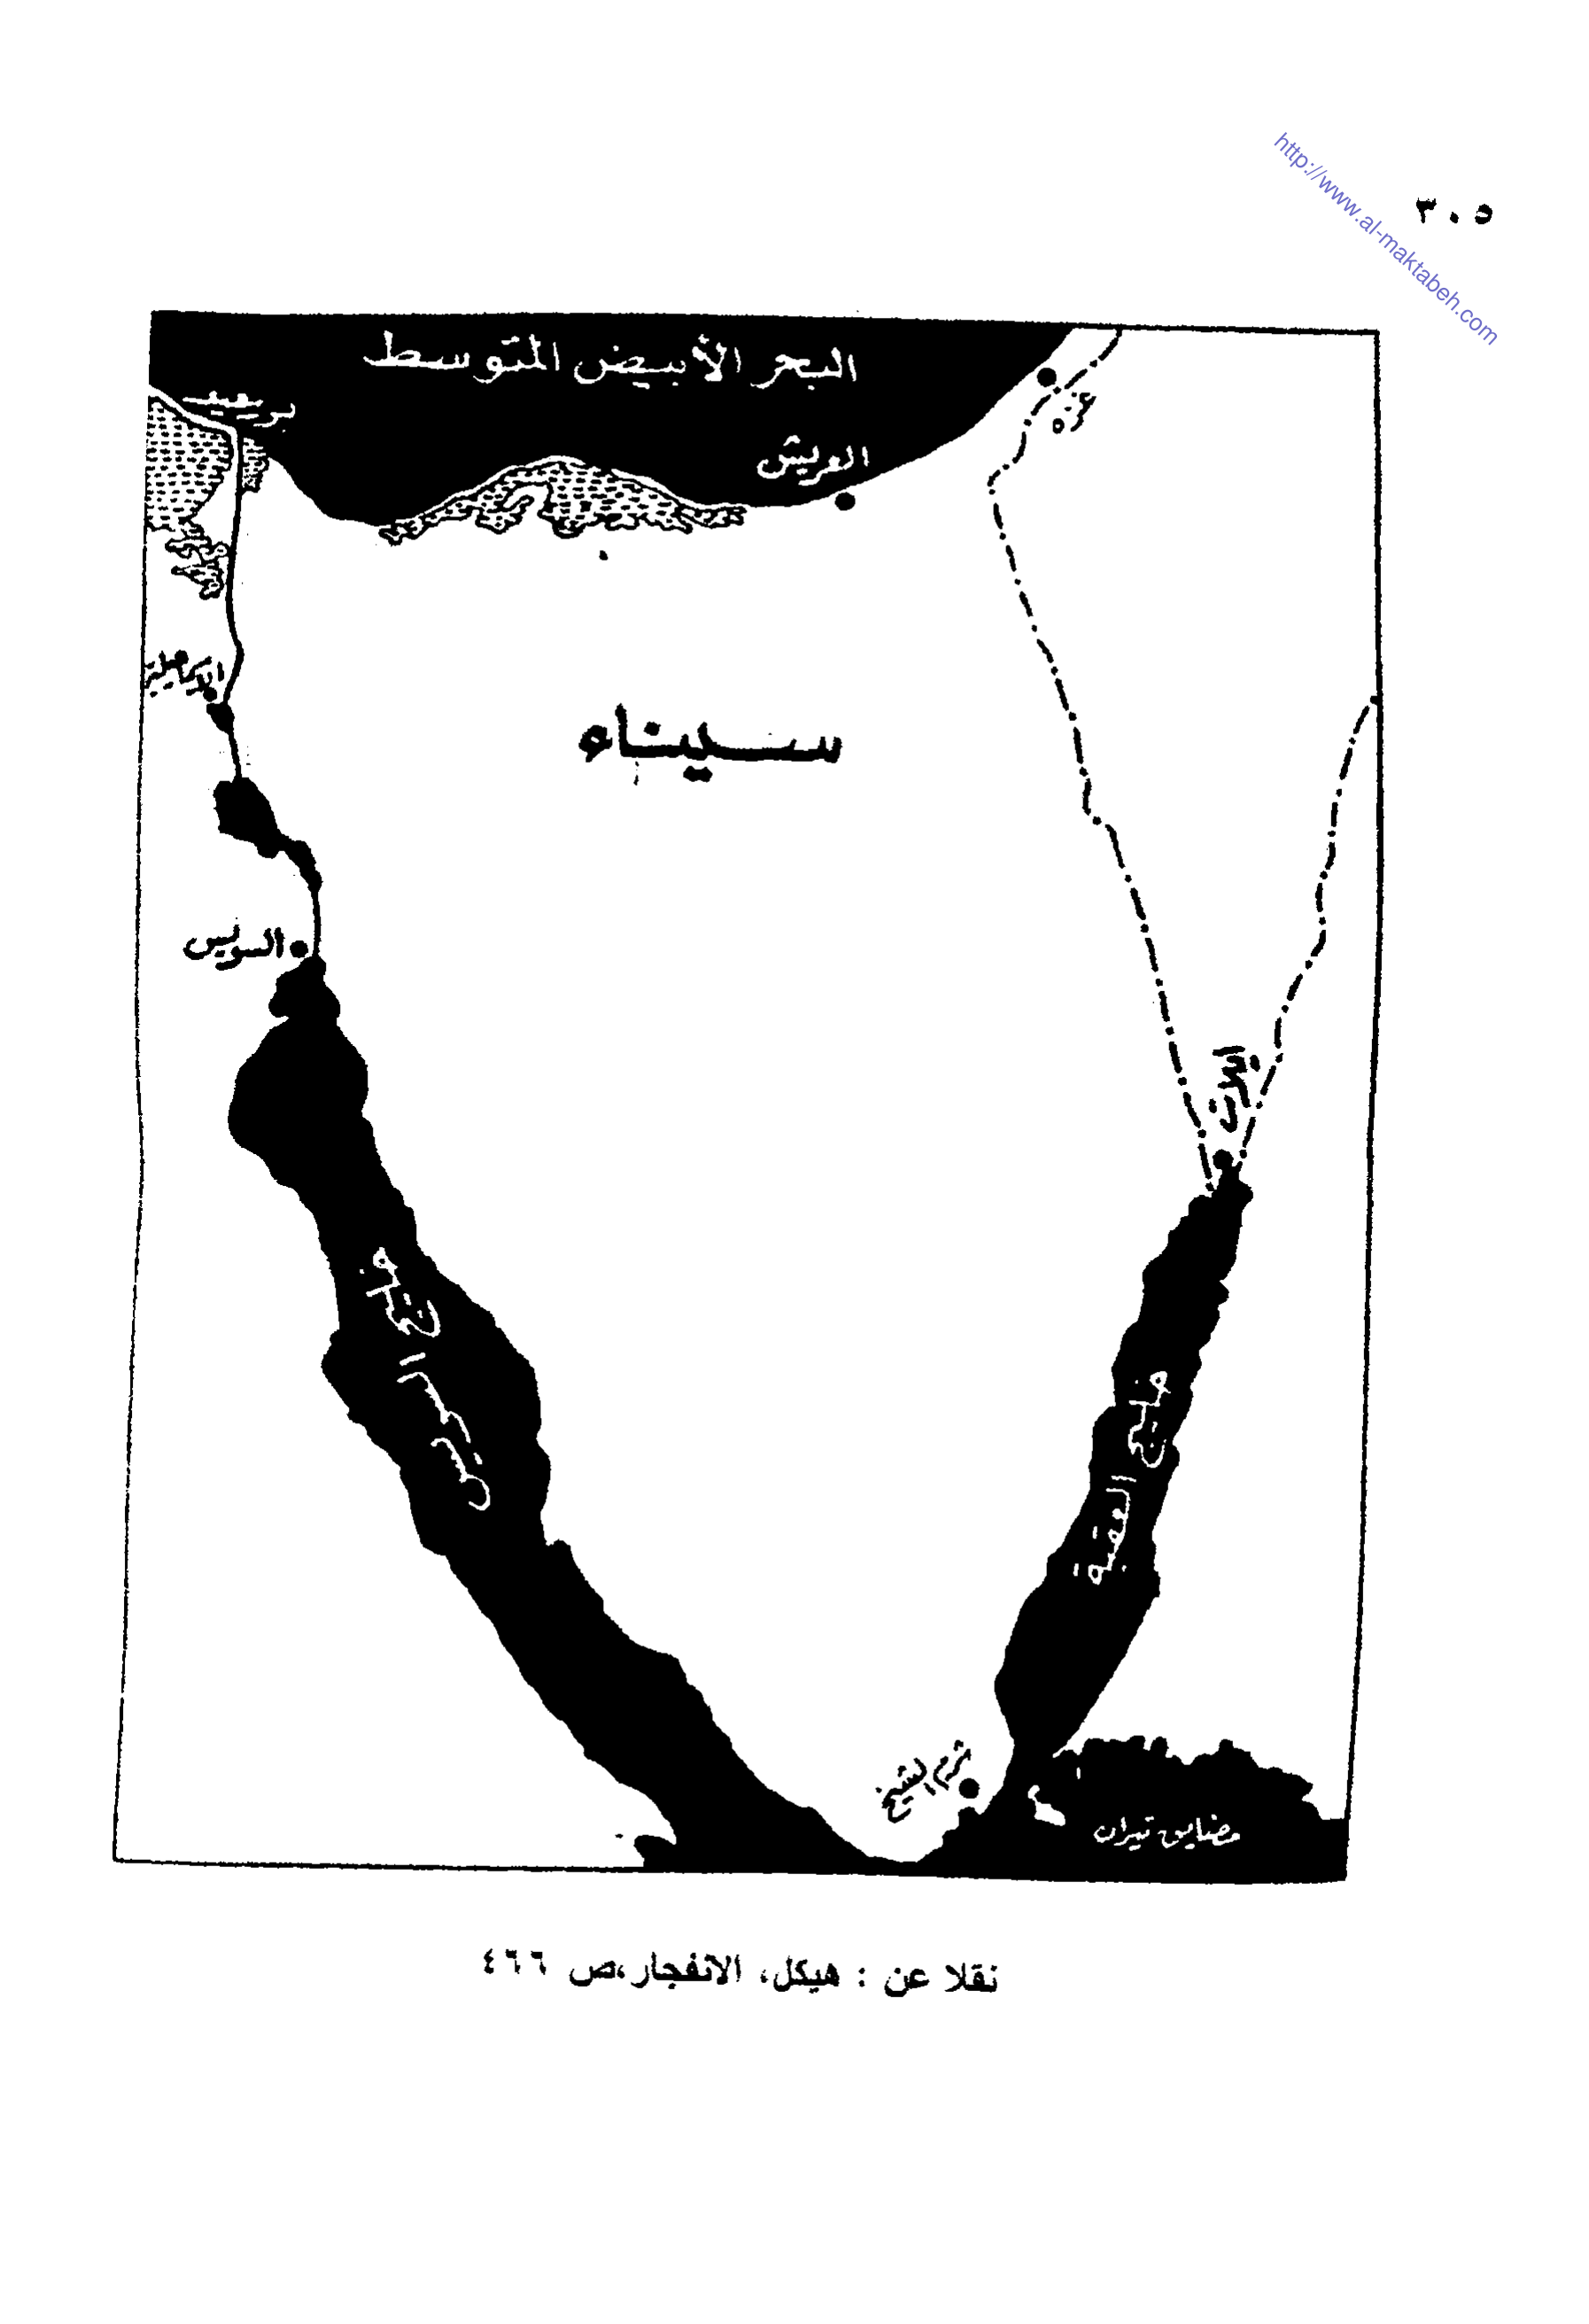 http://www.al-maktabeh.com
٣٠٥
البحر الأبيض المتوسط
بور سعيد
العريش
غزه
سيناء
السويس
ايلات
خليج السويس
خليج العقبة
شرم الشيخ
مضايق تيران
نقلا عن : هيكل، الانفجار،ص ٤٦٦